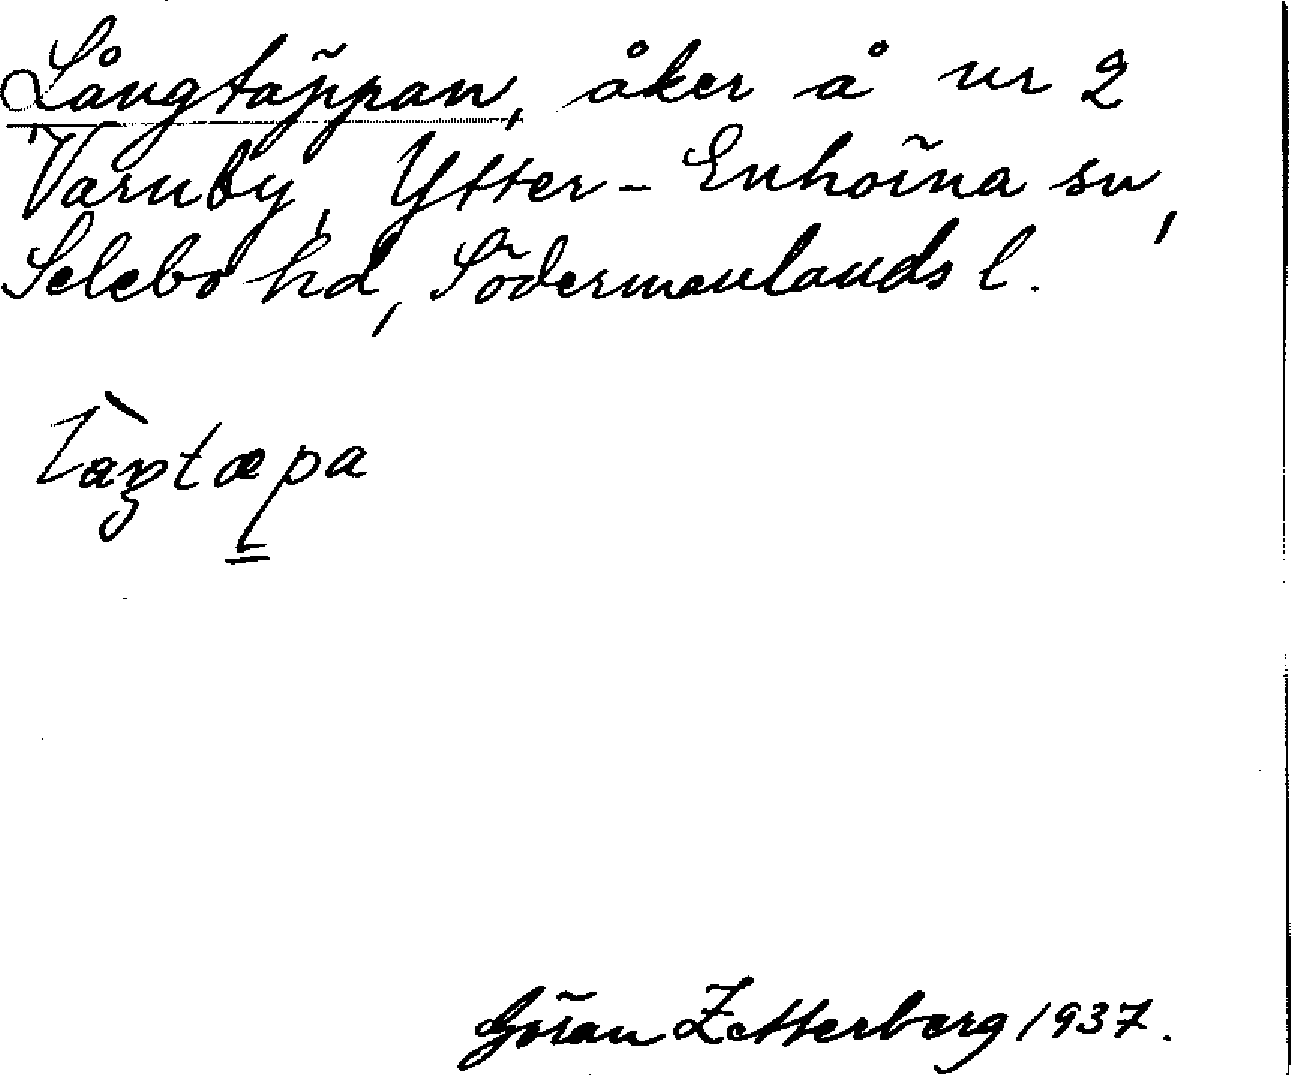 Långtäppan, åker å nr 2
Varuby, Ytter-Enhörna sn,
Selebo hd, Södermanlands l.
làŋtæpa
Göran Zetterberg 1937.